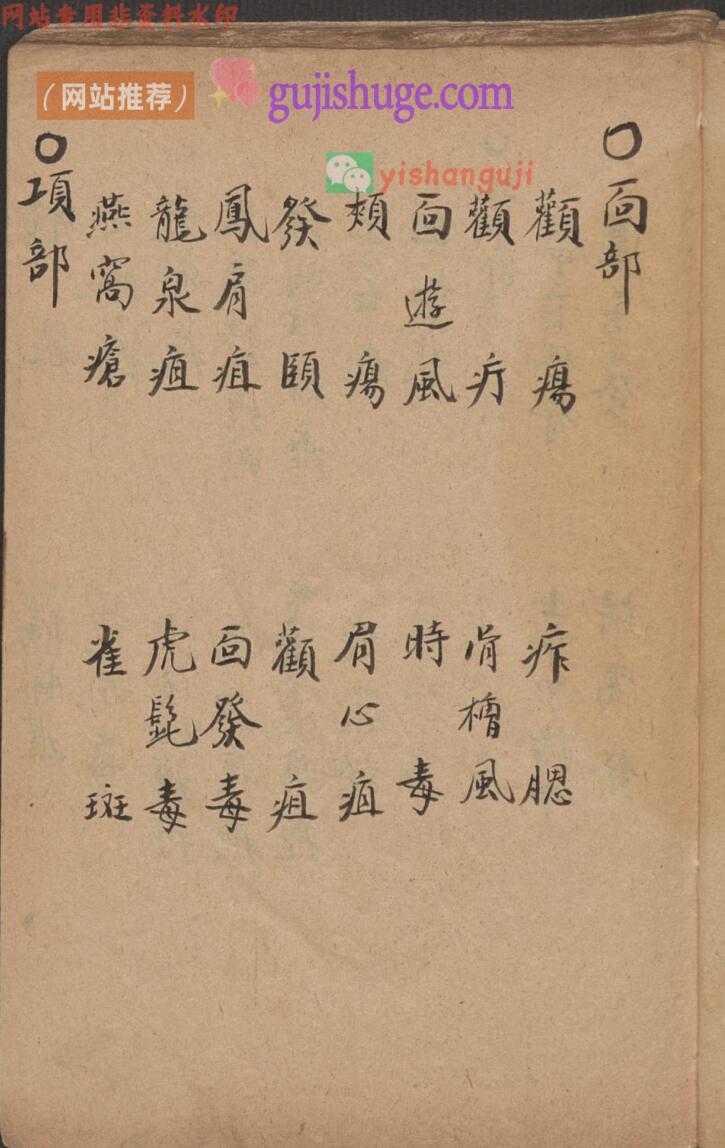 网站专用非资料水印
（网站推荐）
gujishuge.com
yishanguji
〇面部
顴瘍 痄腮
顴疔 骨槽風
面遊風 時毒
頰瘍 眉心疽
發頤 顴疽
鳳眉疽 面發毒
龍泉疽 虎髭毒
燕窩瘡 雀斑
〇項部